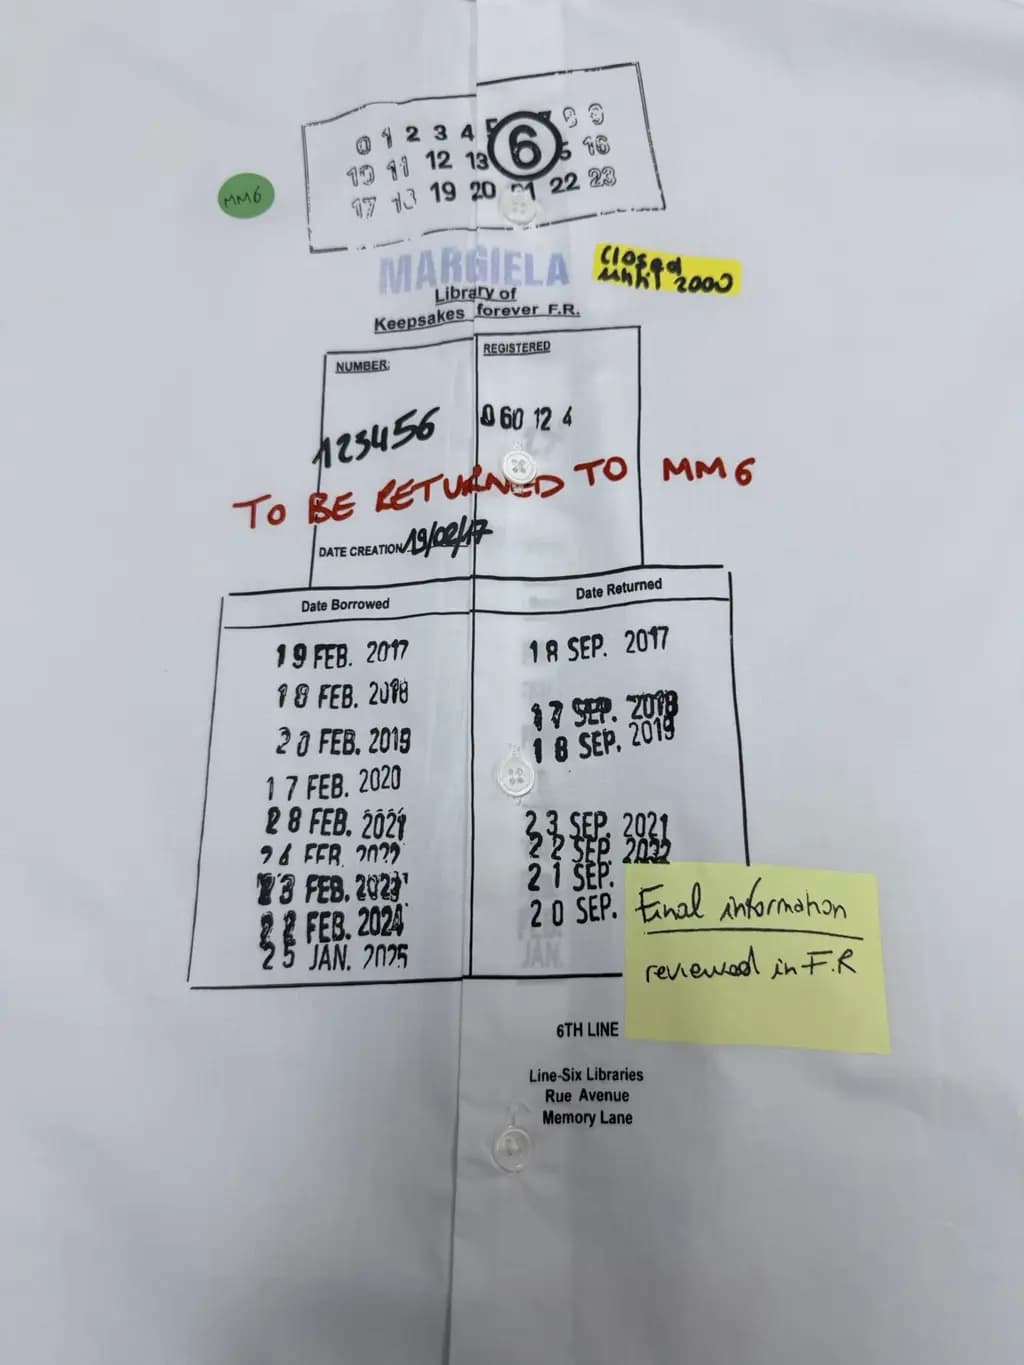 0 1 2 3 4 5 6 7 8 9
10 11 12 13 16
17 18 19 20 21 22 23
MM6
MARGIELA
Closed
until 2000
Library of
Keepsakes forever F.R.
NUMBER:
REGISTERED
123456
060 12 4
TO BE RETURNED TO MM6
DATE CREATION 19/02/17
Date Borrowed
Date Returned
19 FEB. 2017
18 SEP. 2017
18 FEB. 2018
17 SEP. 2018
20 FEB. 2019
18 SEP. 2019
17 FEB. 2020
28 FEB. 2021
23 SEP. 2021
24 FEB. 2022
22 SEP. 2022
23 FEB. 2023
21 SEP.
22 FEB. 2024
20 SEP.
25 JAN. 2025
Final information
reviewed in F.R
6TH LINE
Line-Six Libraries
Rue Avenue
Memory Lane